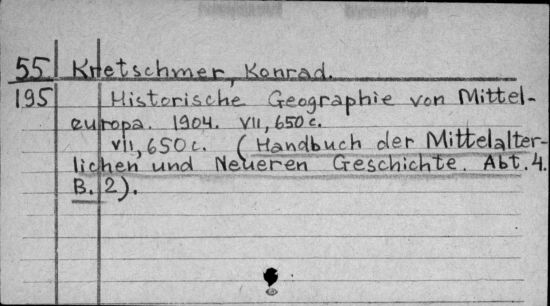 55 Kretschmer, Konrad.
195 Historische Geographie von Mittel-
europa. 1904. VII, 650 c.
VII, 650 c. (Handbuch der Mittelalter-
lichen und Neueren Geschichte. Abt. 4.
B. 2).